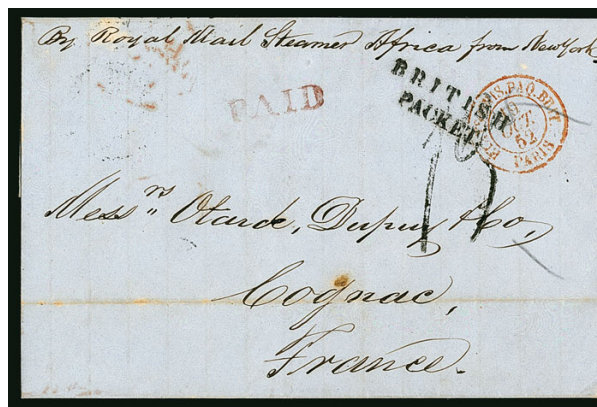 By Royal Mail Steamer Africa from New York
PAID
BRITISH
PACKET
PAQ. BRIT.
OCT.
52
PARIS
Messrs Otard, Dupuy & Co,
Cognac,
France.